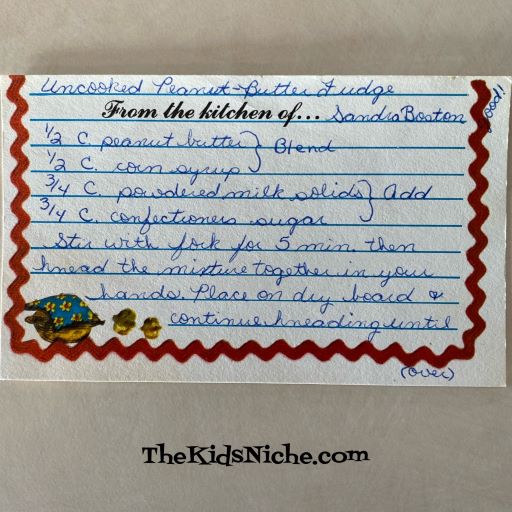 Uncooked Peanut-Butter Fudge
good!
From the kitchen of... Sandra Boston
1/2 C. peanut butter } Blend
1/2 C. corn syrup
3/4 C. powdered milk solids } Add
3/4 C. confectioners sugar
Stir with fork for 5 min. then
knead the mixture together in your
hands. Place on dry board &
continue kneading until
(over)
TheKidsNiche.com